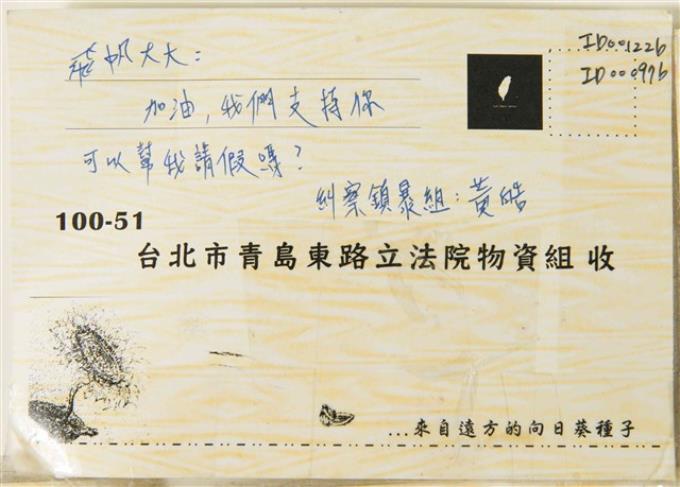 飛帆大大：
ID001226
ID000976
加油，我們支持你
可以幫我請假嗎？
糾察鎮暴組：黃皓
100-51
台北市青島東路立法院物資組 收
...來自遠方的向日葵種子